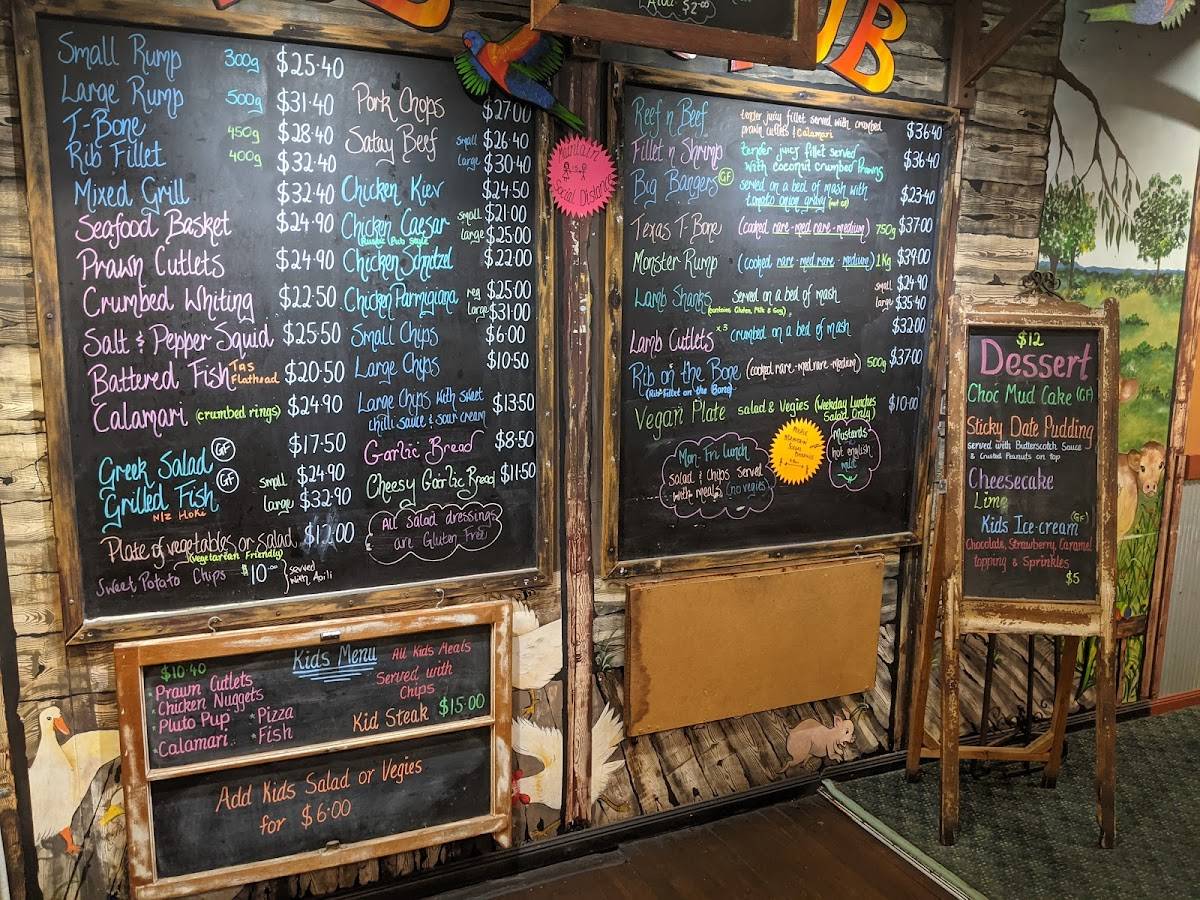 Add $2.00
UB
Small Rump 300g $25.40
Large Rump 500g $31.40
T-Bone 450g $28.40
Rib Fillet 400g $32.40
Mixed Grill $32.40
Seafood Basket $24.90
Prawn Cutlets $24.90
Crumbed Whiting $22.50
Salt & Pepper Squid $25.50
Battered Fish Tas Flathead $20.50
Calamari (crumbed rings) $24.90
Greek Salad GF $17.50
Grilled Fish GF small $24.90
NZ Hoki large $32.90
Plate of vegetables or salad $12.00
(Vegetarian Friendly)
Sweet Potato Chips $10.00 served with Aoili
Pork Chops $27.00
Satay Beef small $26.40
large $30.40
Chicken Kiev $24.50
Chicken Caesar small $21.00
Rustic Pub Style large $25.00
Chicken Schnitzel $22.00
Chicken Parmigiana reg $25.00
large $31.00
Small Chips $6.00
Large Chips $10.50
Large Chips with sweet
chilli sauce & sour cream $13.50
Garlic Bread $8.50
Cheesy Garlic Bread $11.50
All salad dressings
are Gluten Free
Maintain
Social Distance
Reef n Beef tender juicy fillet served with crumbed
prawn cutlets & calamari $36.40
Fillet n Shrimp tender juicy fillet served
with coconut crumbed Prawns $36.40
Big Bangers GF served on a bed of mash with
tomato onion gravy (not GF) $23.40
Texas T-Bone (cooked rare-med rare-medium) 750g $37.00
Monster Rump (cooked rare-med rare-medium) 1Kg $39.00
Lamb Shanks served on a bed of mash small $24.90
(contains Gluten, Milk & Soy) large $35.40
Lamb Cutlets x3 crumbed on a bed of mash $32.00
Rib on the Bone (cooked rare-med rare-medium) 500g $37.00
(Rib Fillet on the Bone)
Vegan Plate salad & Vegies (Weekday Lunches
Salad Only) $10.00
Mon-Fri lunch
Salad & Chips served
with meals (no vegies)
Mustards
hot english
mild
$12
Dessert
Choc Mud Cake (GF)
Sticky Date Pudding
served with Butterscotch Sauce
& Crusted Peanuts on top
Cheesecake
Lime
Kids Ice-cream (GF)
Chocolate, Strawberry, Caramel
topping & Sprinkles
$5
Kids Menu
$10.40
Prawn Cutlets
Chicken Nuggets
Pluto Pup
Calamari
Pizza
Fish
All Kids Meals
Served with
Chips
Kid Steak $15.00
Add Kids Salad or Vegies
for $6.00